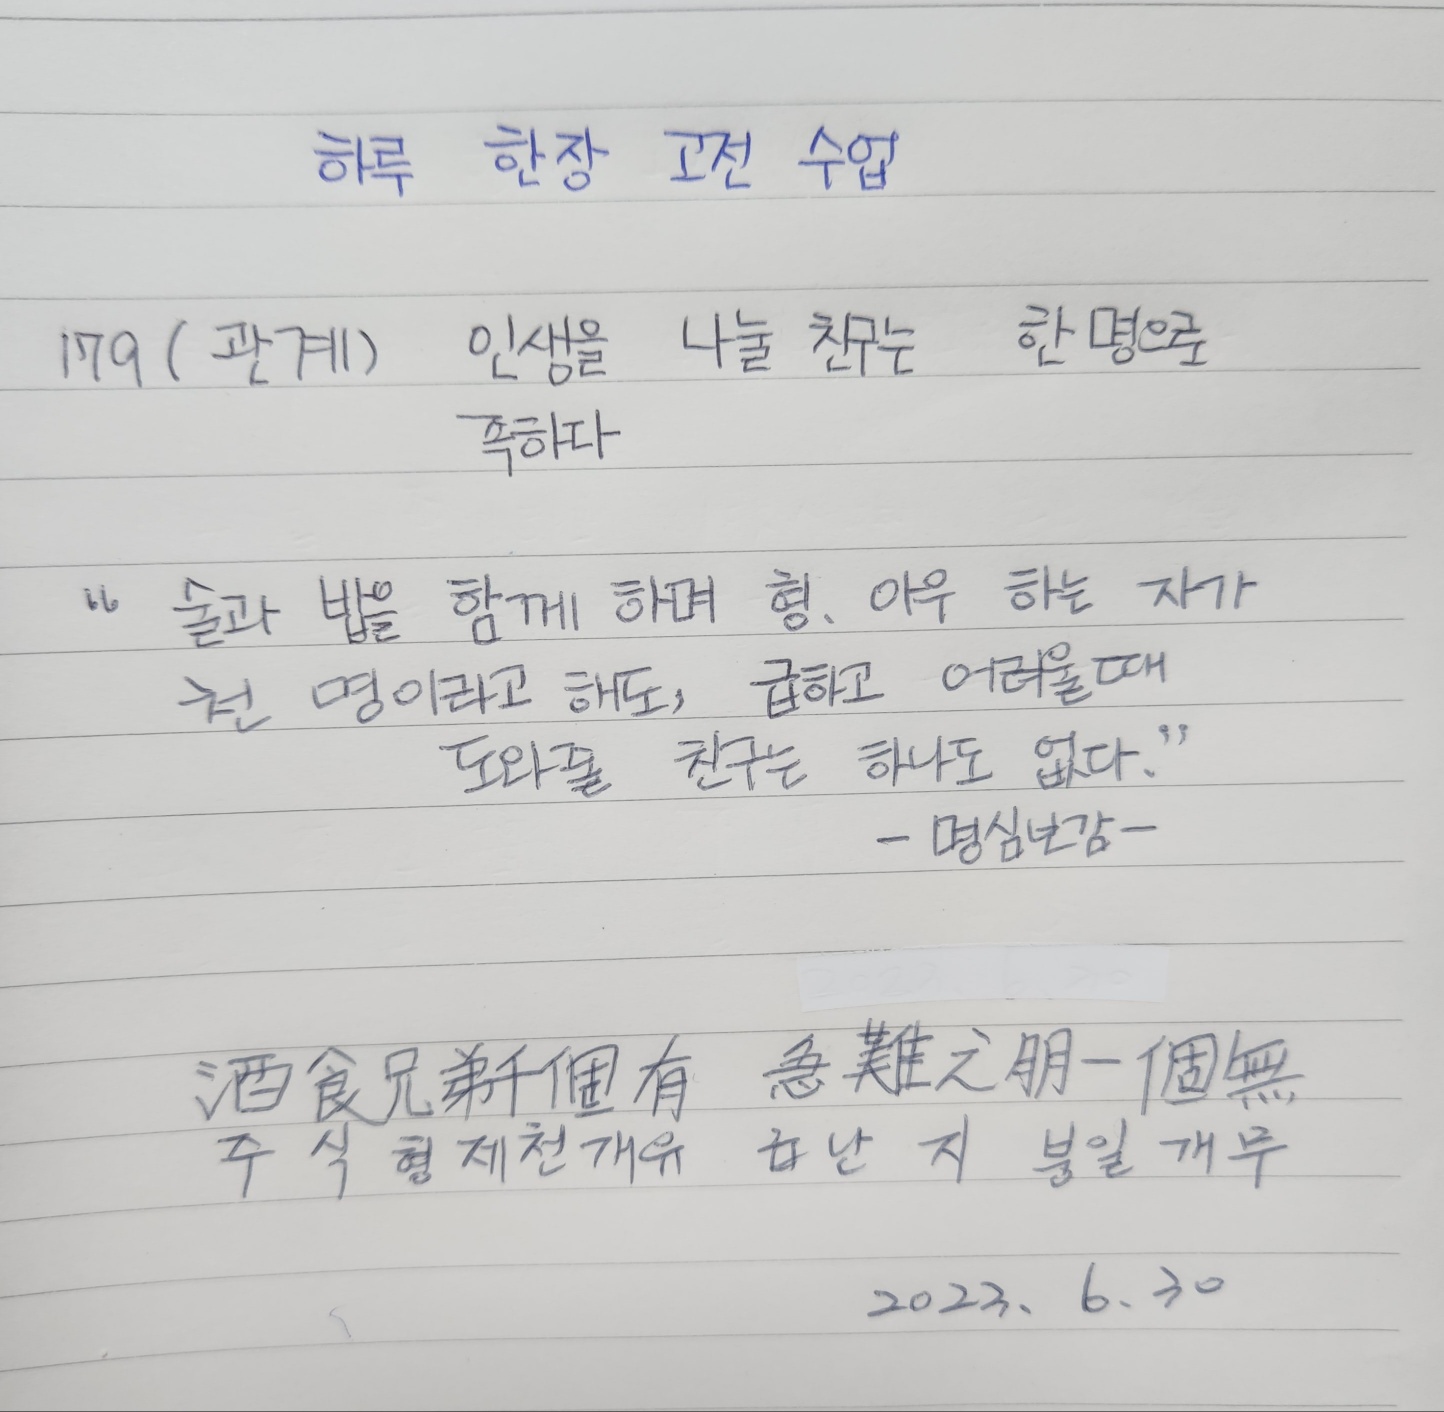 하루 한장 고전 수업
179 (관계) 인생을 나눌 친구는 한 명으로
족하다
“ 술과 밥을 함께 하며 형、아우 하는 자가
천 명이라고 해도, 급하고 어려울때
도와줄 친구는 하나도 없다.”
- 명심보감 -
酒食兄弟千個有 急難之朋一個無
주 식 형 제천개유 급난 지 붕일 개무
2023. 6. 30